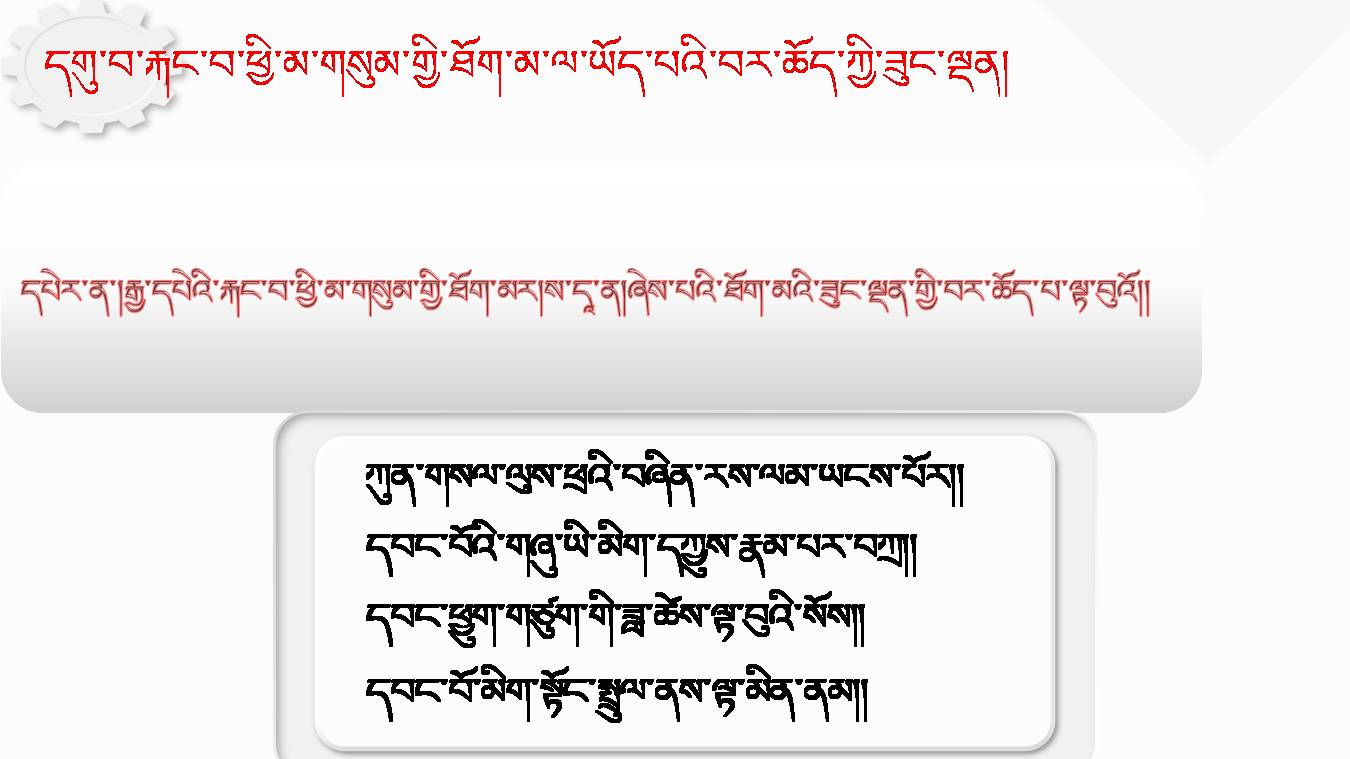 དགུ་བ་རྐང་བ་ཕྱི་མ་གསུམ་གྱི་ཐོག་མ་ལ་ཡོད་པའི་བར་ཆོད་ཀྱི་ཟུང་ལྡན།
དཔེར་ན་།རྒྱ་དཔེའི་རྐང་བ་ཕྱི་མ་གསུམ་གྱི་ཐོག་མར།ས་དཱ་ན།ཞེས་པའི་ཐོག་མའི་ཟུང་ལྡན་གྱི་བར་ཆོད་པ་ལྟ་བུའོ།།
ཀུན་གསལ་ལུས་ཕྲའི་བཞིན་རས་ལམ་ཡངས་པོར།།
དབང་པོའི་གཞུ་ཡི་མིག་དཀྱུས་རྣམ་པར་བཀྲ།།
དབང་ཕྱུག་གཙུག་གི་ཟླ་ཚེས་ལྟ་བུའི་སོས།།
དབང་པོ་མིག་སྟོང་སྤྲུལ་ནས་ལྟ་མིན་ནམ།།